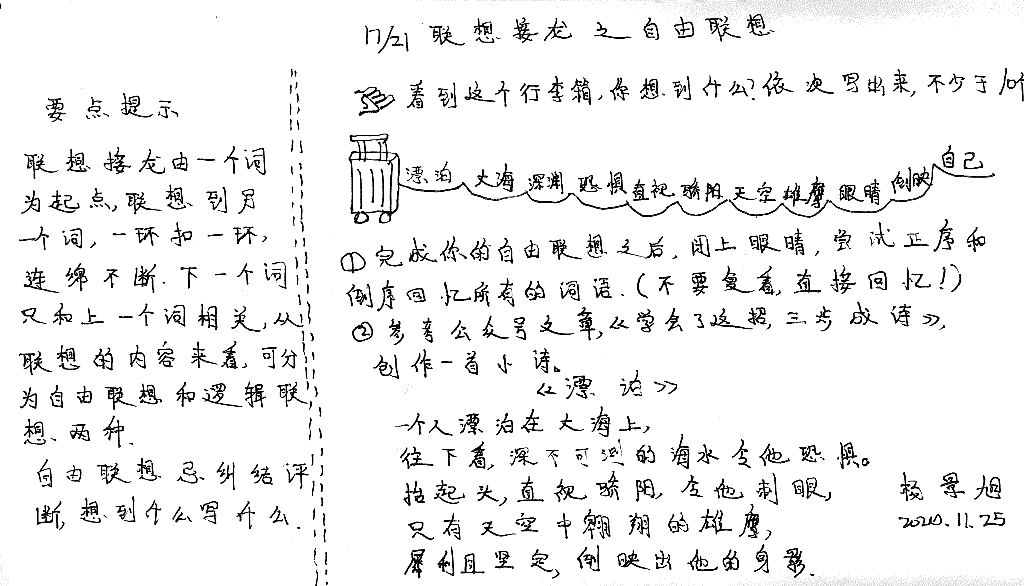 17/21 联想接龙之自由联想
要点提示
联想接龙由一个词
为起点,联想到另
一个词,一环扣一环,
连绵不断.下一个词
只和上一个词相关,从
联想的内容来看,可分
为自由联想和逻辑联
想两种.
自由联想忌纠结评
断,想到什么写什么.
看到这个行李箱,你想到什么?依次写出来,不少于10个
漂泊 大海 深渊 恐惧 直视 骄阳 天空 雄鹰 眼睛 倒映 自己
①完成你的自由联想之后,闭上眼睛,尝试正序和
倒序回忆所有的词语.(不要复看,直接回忆!)
②参考公众号文章,《学会了这招,三步成诗》,
创作一首小诗。
《漂泊》
一个人漂泊在大海上,
往下看,深不可测的海水令他恐惧。
抬起头,直视骄阳,令他刺眼,
只有天空中翱翔的雄鹰,
犀利且坚定,倒映出他的身影.
杨景旭
2020.11.25